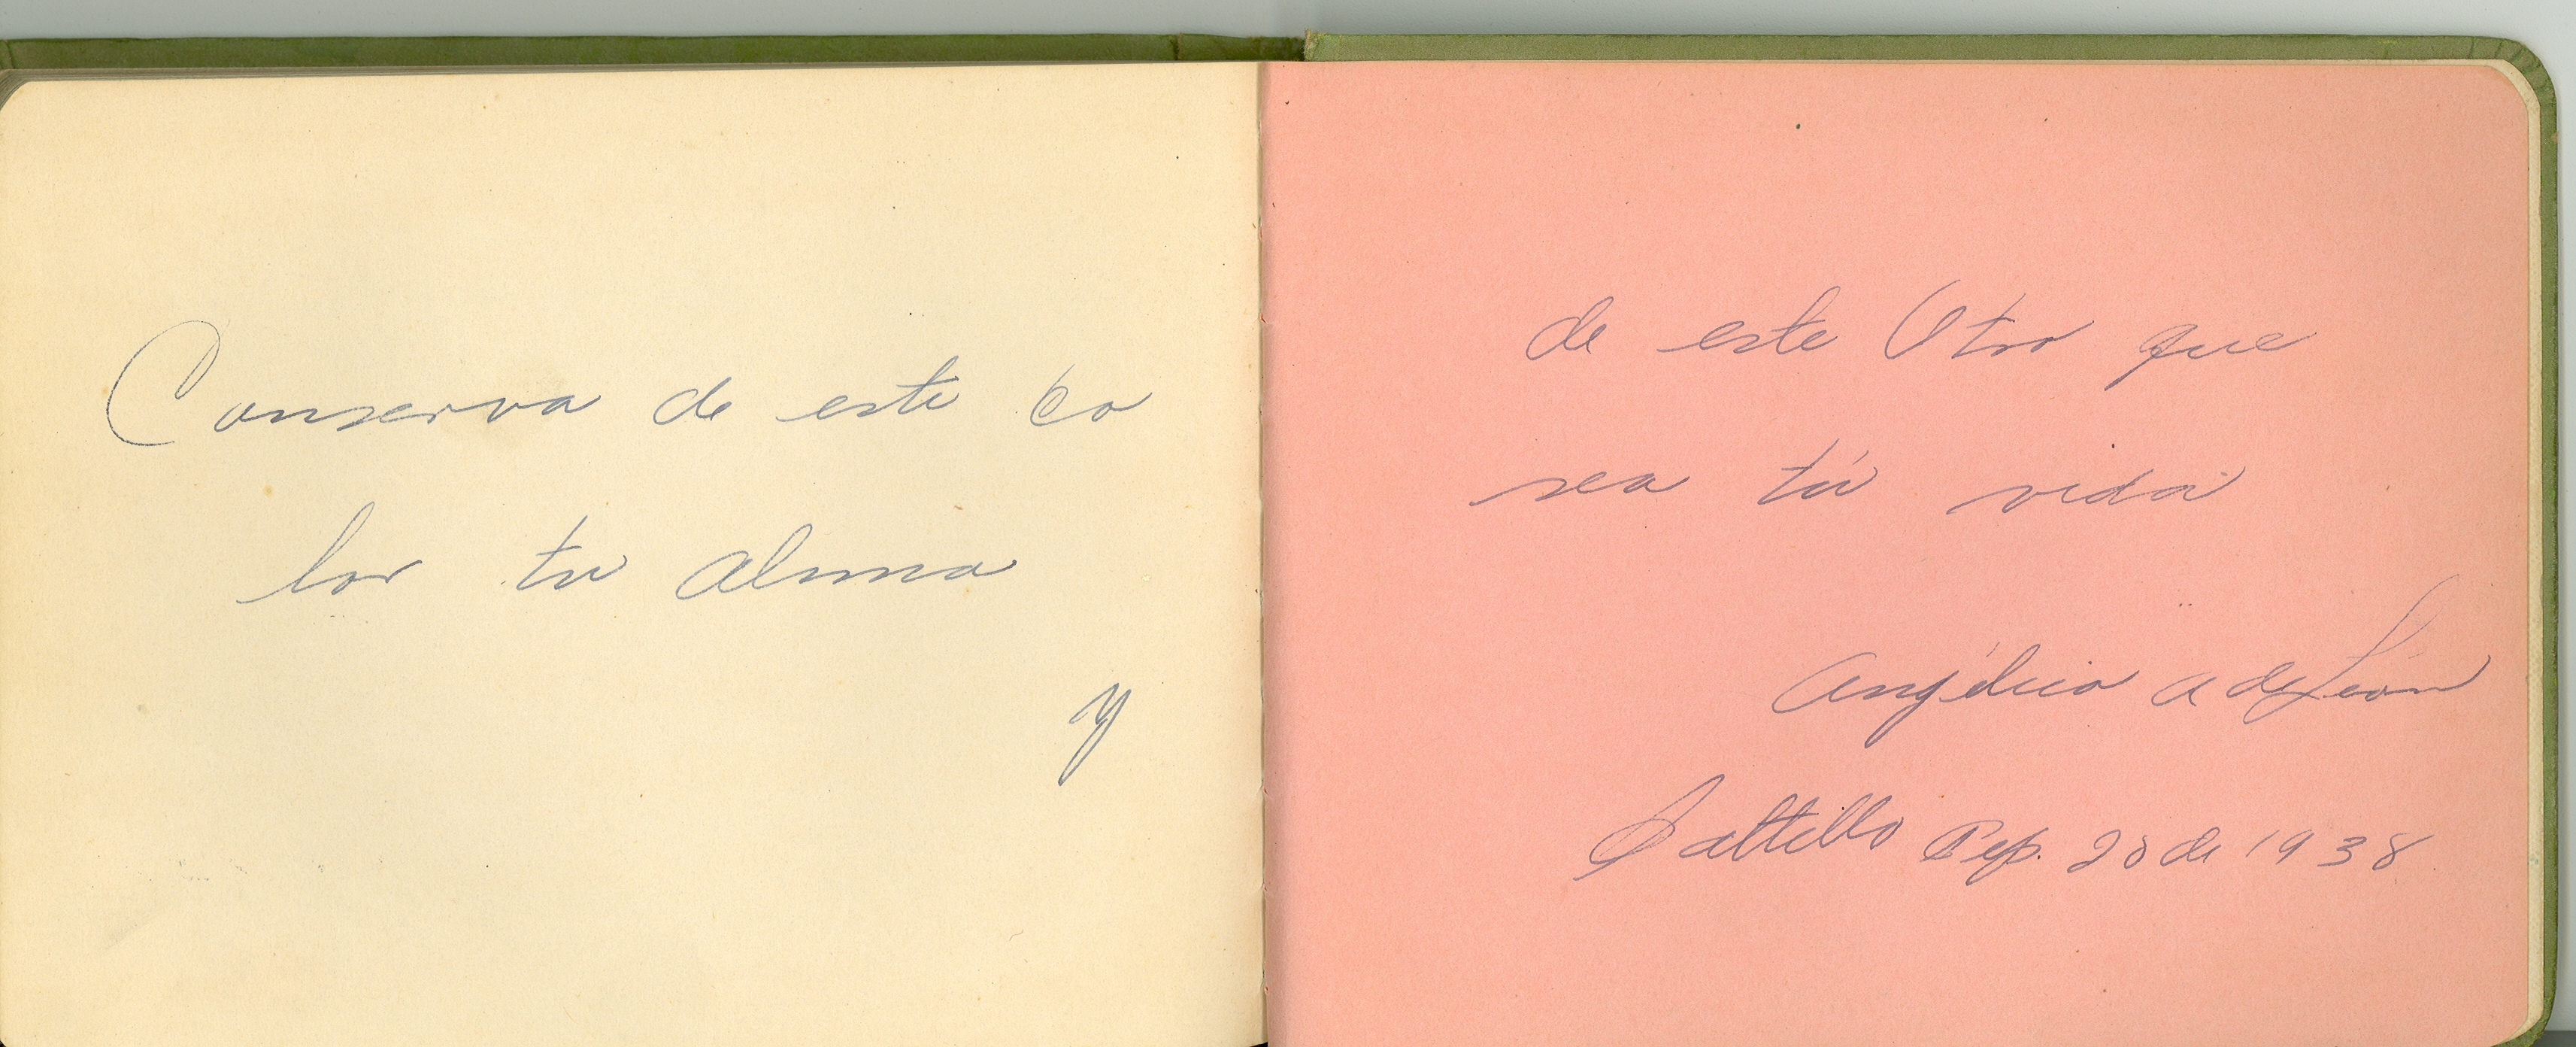 Conserva de este co
lor tu alma
y
de este Otro que
sea tú vida
Angélica A de León
Saltillo Sep. 28 de 1938